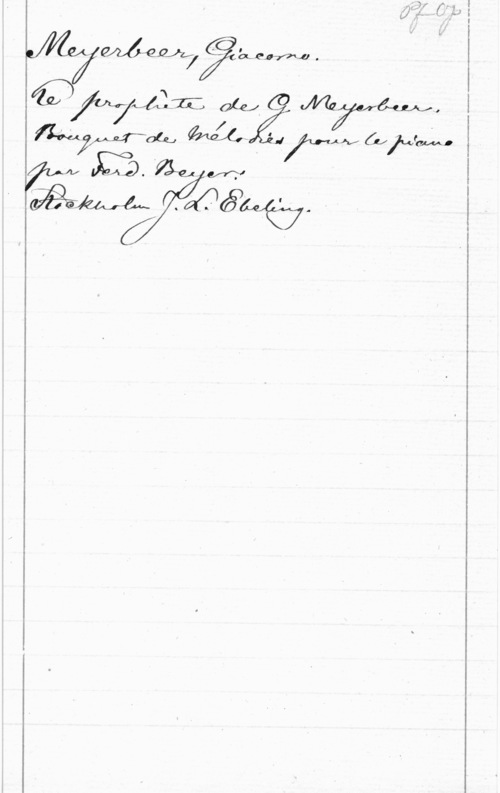 Pf Op
Meyerbeer, Giacomo.
Le prophète de G. Meyerbeer.
Bouquet de Mélodies pour le piano
par Ferd. Beyer.
Stockholm J. L. Ebeling.